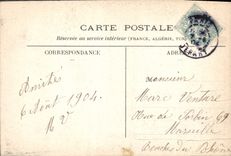 CARTE POSTALE
Réservée au service intérieur (FRANCE, ALGÉRIE, TUN
CORRESPONDANCE
ADRE
Amitiés
6 Août 1904.
M V
Monsieur
Marc Venture
Rue de 69
Marseille
Bouches du Rhône